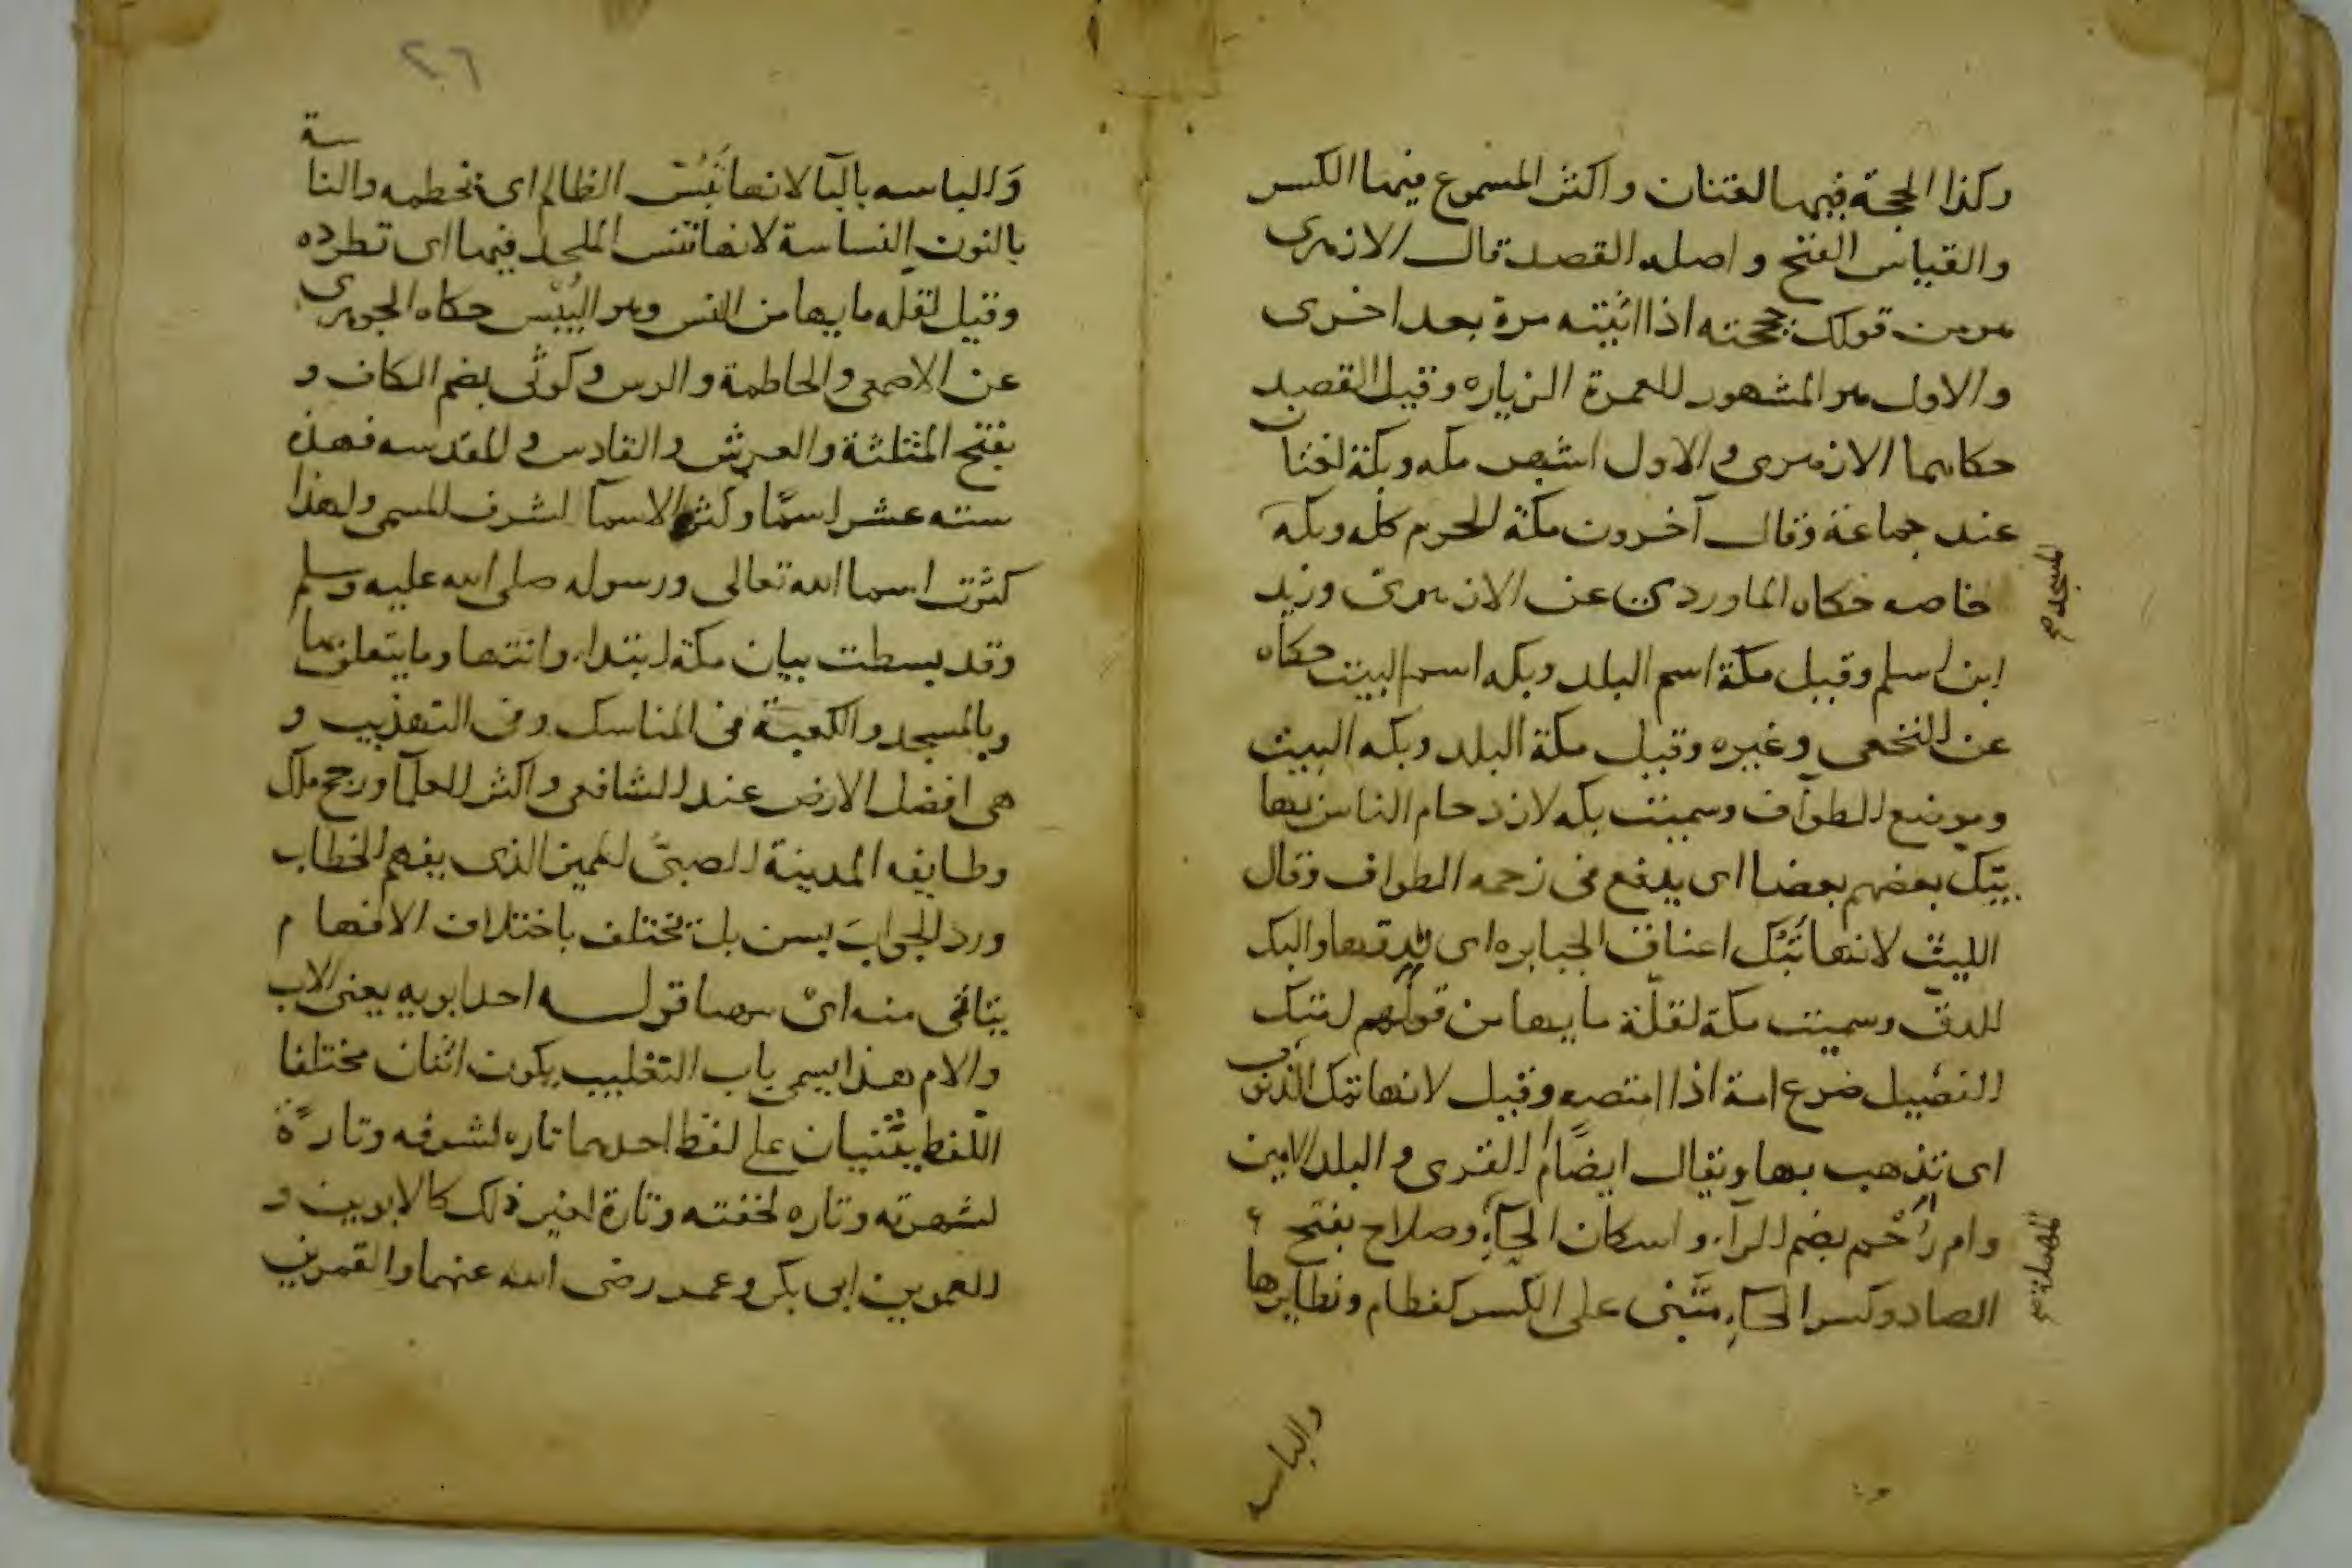 وكذا الحجة فيها لغتان واكثر المسموع فيها الكسر
والقياس الفتح واصله القصد قال الازهرى
هو من قولك حججته اذا اتيته مرة بعد اخرى
والاول هو المشهور للعمرة الزياره وقيل القصد
حكاهما الازهرى والاول اشهر مكه وبكة لغتان
عند جماعة وقال آخرون مكة الحرم كله وبكه
المسجد صح
خاصه حكاه الماوردى عن الازهرى وزيد
ابن اسلم وقيل مكة اسم البلد وبكه اسم البيت حكاه
عن النخعى وغيره وقيل مكة البلد وبكه البيت
وموضع الطواف وسميت بكه لازدحام الناس بها
يبك بعضهم بعضا اى يدفع فى زحمه الطواف وقال
الليث لانها تبك اعناق الجبابره اى تدقها والبك
الدق وسميت مكة لقلة مايها من قولهم امتك
الفصيل ضرع امه اذا امتصه وقيل لانها تمك الذنوب
اى تذهب بها ويقال ايضًا ام القرى والبلد الامين
وام رُحْم بضم الرآء واسكان الحآء وصلاح بفتح
المهملة صح
الصاد وكسر الحآء مبنى على الكسر كفطام ونظايرها
والباسه
٢٦
والباسه بالبآ لانها تبُسّ الظالم اى تحطمه والناسة
بالنون النساسة لانها تنس الملحد فيها اى تطرده
وقيل لقله مايها من النس وهو اليُبْس حكاه الجوهرى
عن الاصمعى والحاطمة والرس وكوثى بضم الكاف و
بفتح المثلثة والعرش والقادس والمقدسه فهذه
سته عشر اسمًا وكثرة الاسمآ لشرف المسمى ولهذا
كثرت اسما الله تعالى ورسوله صلى الله عليه وسلم
وقد بسطت بيان مكة ابتداء وانتها وما يتعلق بها
وبالمسجد والكعبة فى المناسك وفى التهذيب و
هى افضل الارض عند الشافعى واكثر العلمآ ورجح مالك
وطايفه المدينة الصبىّ المميز الذى يفهم الخطاب
ورد الجواب بسن بل يختلف باختلاف الافهام
يتاتى منه اىْ سها قوله احد ابويه يعنى الاب
والام هذا يسمى باب التغليب يكون اثنان مختلفا
اللفظ يثنيان على لفظ احدهما تاره لشرفه وتارةً
لشهرته وتاره لخفته وتارة لغير ذلك كالابوين و
العمرين ابى بكر وعمر رضى الله عنهما والقمرين